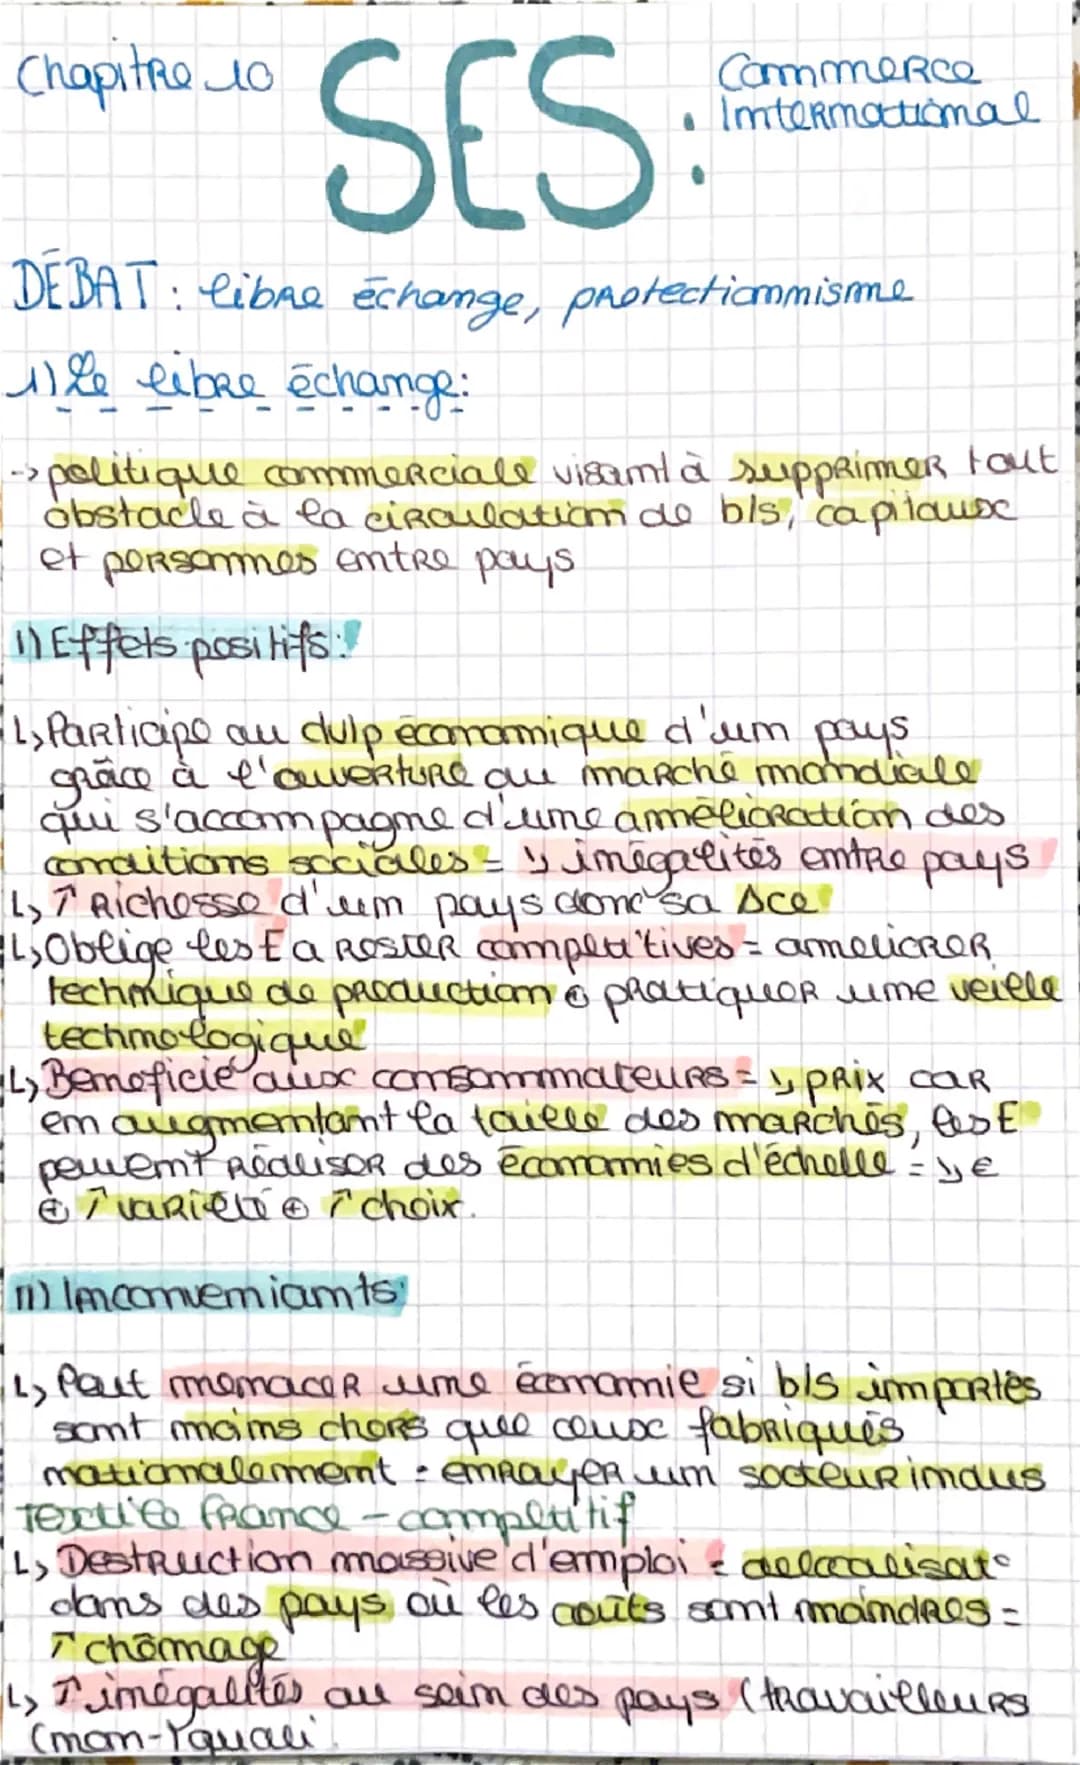 Chapitre 10 SES : Commerce
International
DÉBAT : libre échange, protectionnisme
1) Le libre échange :
-> politique commerciale visant à supprimer tout
obstacle à la circulation de b/s, capitaux
et personnes entre pays
I) Effets positifs :
↳ Participe au dvlp économique d'un pays
grâce à l'ouverture au marché mondiale
qui s'accompagne d'une amélioration des
conditions sociales = ↘ inégalités entre pays
↳ ↑ Richesse d'un pays donc sa Δce
↳ Oblige les E a rester compétitives = ameliorer
technique de production ⊕ pratiquer une veielle
technologique
↳ Beneficie aux consommateurs = ↘ prix car
en augmentant la taille des marchés, les E
peuvent réaliser des économies d'échelle = ↘ €
⊕ ↑ variété ⊕ ↑ choix.
II) Inconveniants :
↳ Peut menacer une économie si b/s importés
sont moins chers que ceux fabriqués
nationalement = enrayer un secteur indus
Textile France - compétitif
↳ Destruction massive d'emploi = delocalisat°
dans des pays où les coûts sont moindres =
↑ chômage
↳ ↑ inégalités au sein des pays (travailleurs
(non-quali